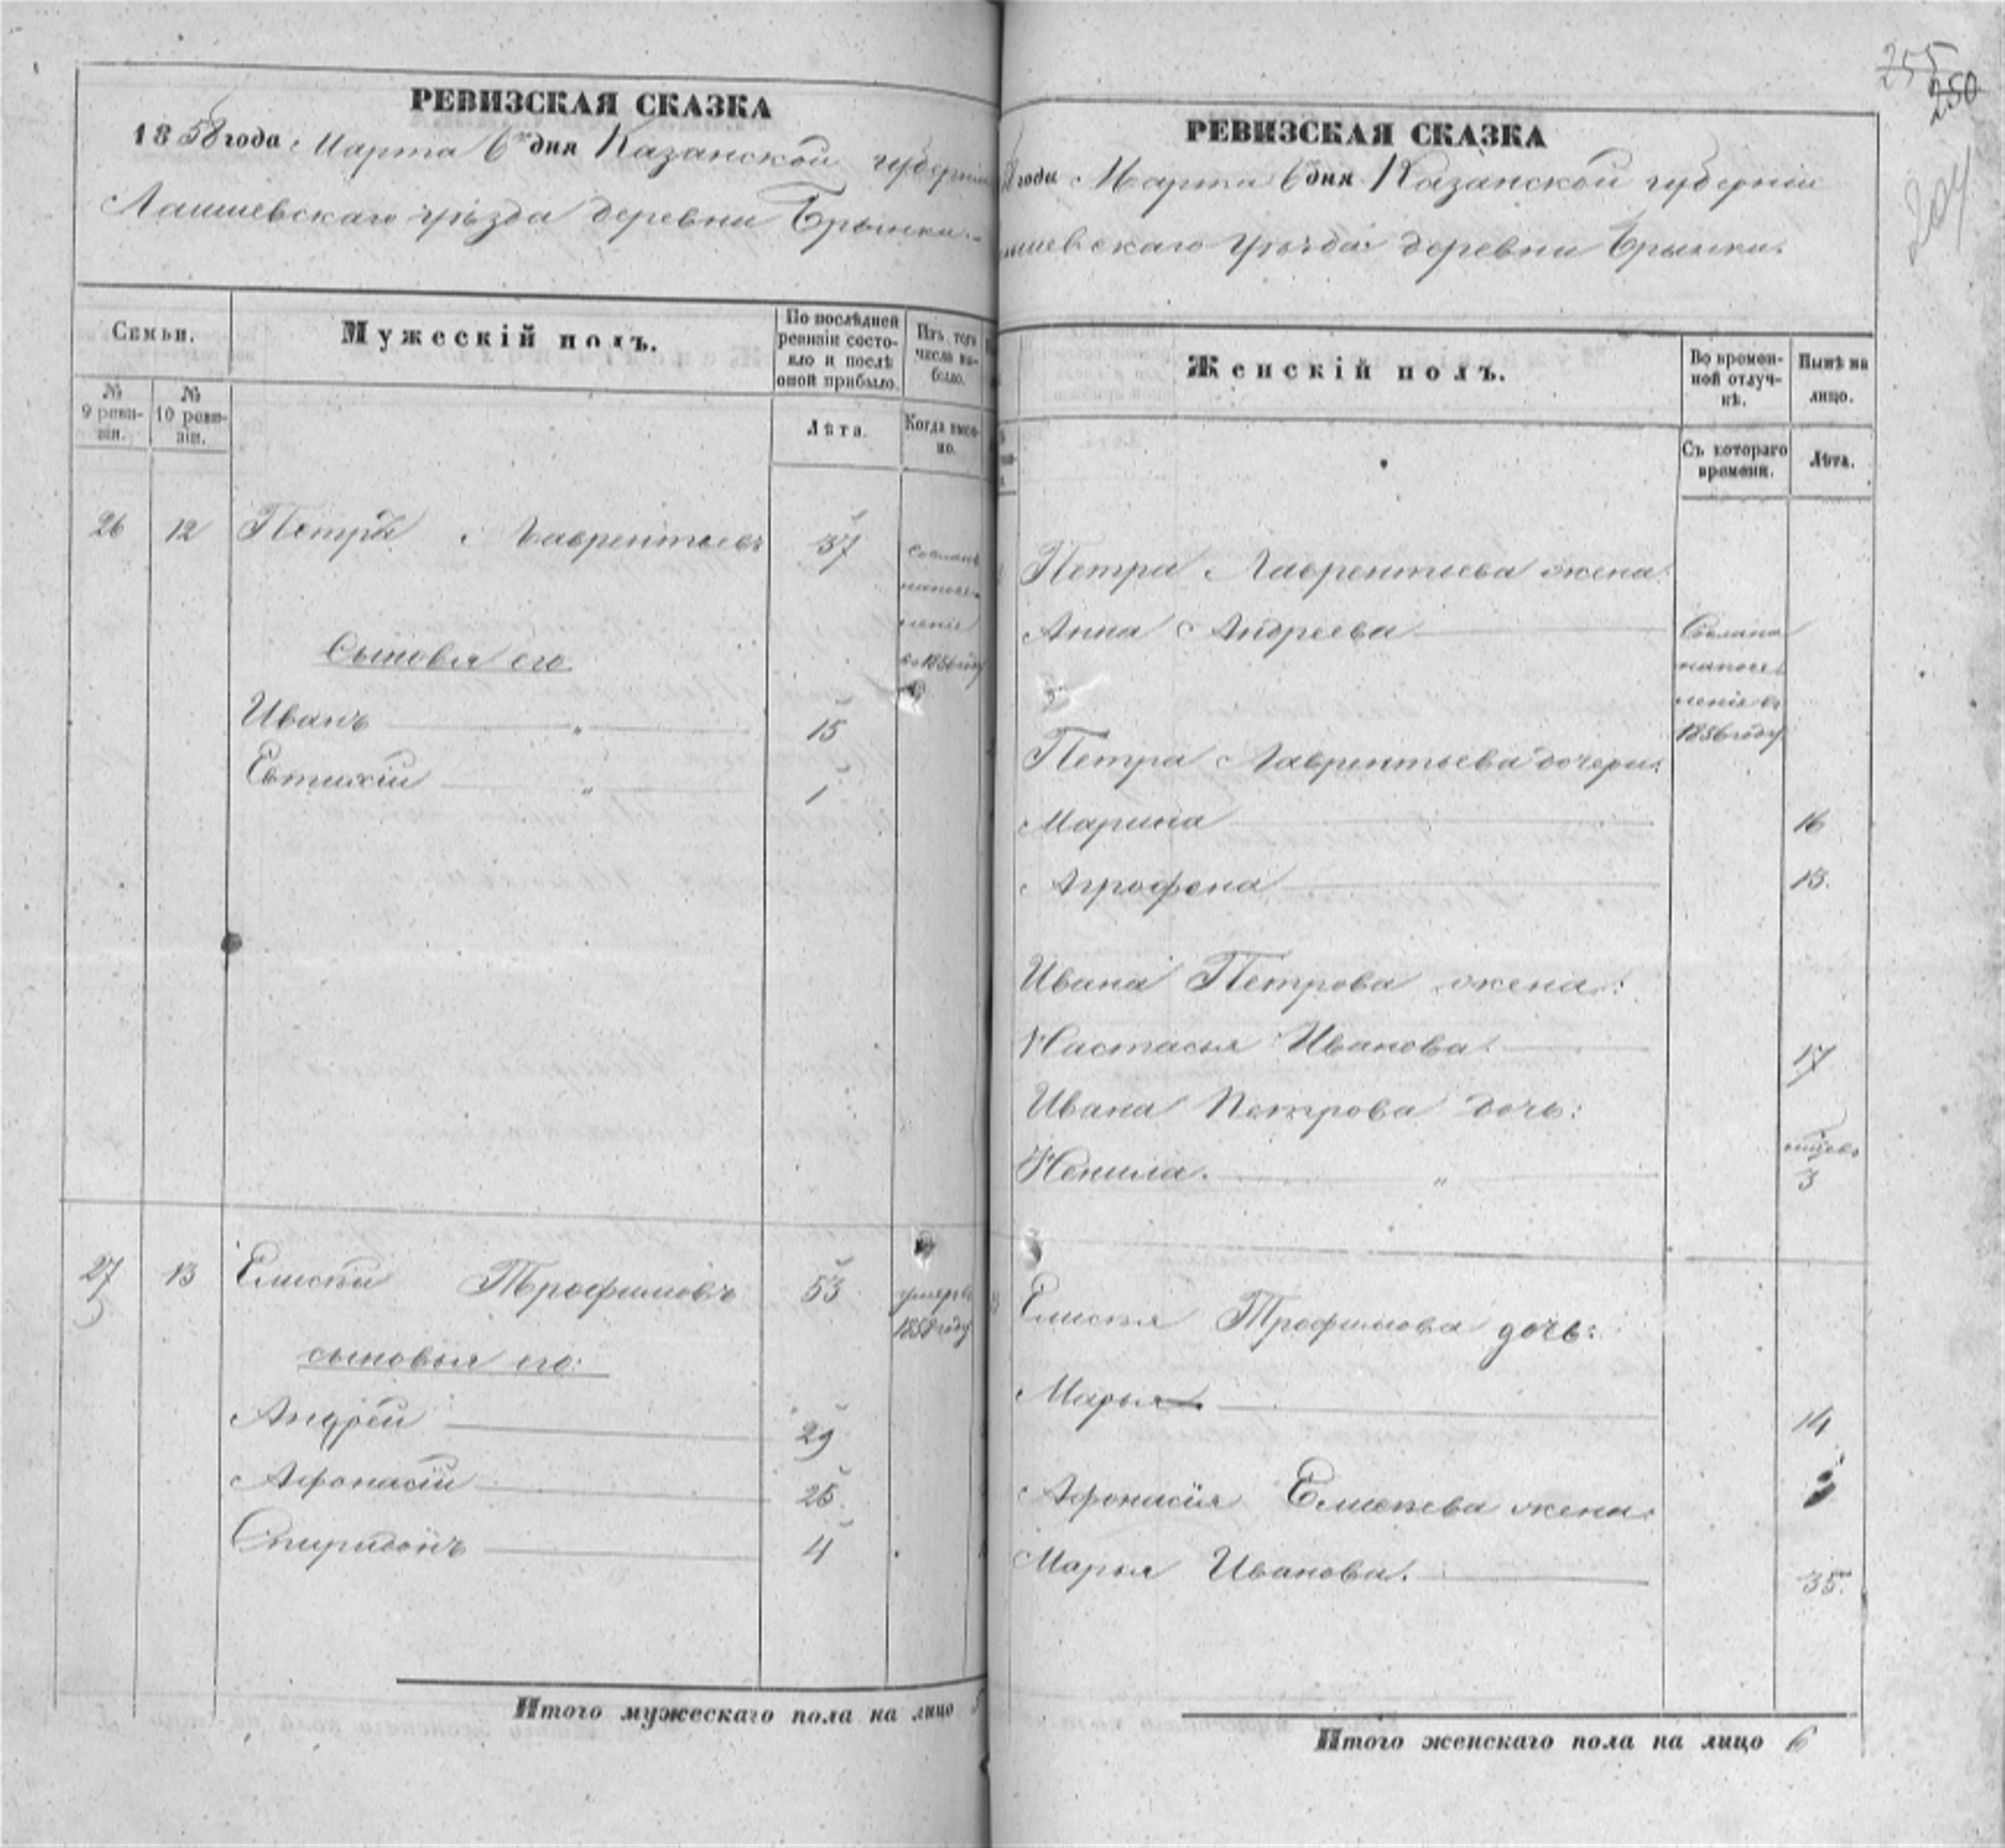 РЕВИЗСКАЯ СКАЗКА
1858 года Марта 6го дня Казанской губерніи
Лаишевскаго уѣзда деревни Брынки.
Семьи.
Мужескій полъ.
По послѣдней ревизіи состояло и послѣ оной прибыло.
Изъ того числа выбыло.
№ 9 ревизіи.
№ 10 ревизіи.
Лѣта.
Когда именно.
26 12 Петръ Лаврентьевъ 37 сосланъ
на посе-
леніе
въ 1856 году
Сыновья его
Иванъ " 15
Евтихій " 1
27 13 Елисѣй Трофимовъ 53 умеръ въ
1858 году
сыновья его:
Андрей 29
Афонасій 25
Спиридонъ 4
Итого мужескаго пола на лицо
255
250
204
РЕВИЗСКАЯ СКАЗКА
года Марта 6 дня Казанской губерніи
ишевскаго Уѣзда деревни Брынки.
Женскій полъ.
Во времен-
ной отлуч-
кѣ.
Нынѣ на
лицо.
Съ котораго
времени.
Лѣта.
Петра Лаврентьева жена
Анна Андреева Сослана
на посе-
леніе въ
1856 году
Петра Лаврентьева дочери:
Марина 16
Агрофена 13.
Ивана Петрова жена:
Настасья Иванова. 17
Ивана Петрова дочь:
Ненила. " 3
Елисѣя Трофимова дочь:
Марья 14
Афонасія Елисѣева жена:
Марья Иванова. 35.
Итого женскаго пола на лицо 6